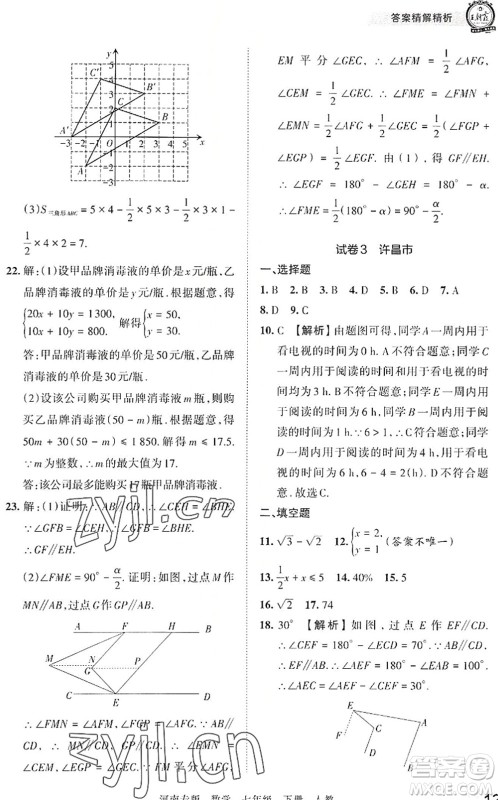 答案精解精析
王朝霞
(3)S三角形ABC = 5 × 4 - 1/2 × 5 × 3 - 1/2 × 3 × 1 -
1/2 × 4 × 2 = 7.
22. 解：(1)设甲品牌消毒液的单价是x元/瓶,乙
品牌消毒液的单价是y元/瓶.根据题意,得
{20x + 10y = 1300, 10x + 10y = 800. 解得{x = 50, y = 30.
答：甲品牌消毒液的单价是50元/瓶,乙品牌
消毒液的单价是30元/瓶.
(2)设该公司购买甲品牌消毒液m瓶,则购
买乙品牌消毒液(50 - m)瓶.根据题意,得
50m + 30(50 - m) ≤ 1850. 解得m ≤ 17.5.
∵m为整数,∴m的最大值为17.
答：该公司最多能购买17瓶甲品牌消毒液.
23. 解：(1)证明：∵AB∥CD,∴∠CEH = ∠BHE.
∵∠GFB = ∠CEH,∴∠GFB = ∠BHE.
∴GF∥EH.
(2)∠FME = 90° - α/2. 证明：如图,过点M作
MN∥AB,过点G作GP∥AB.
∴∠FMN = ∠AFM, ∠FGP = ∠AFG. ∵AB∥
CD,∴MN∥CD,GP∥CD. ∴∠EMN = ∠CEM,
∠EGP = ∠CEG. ∵FM平分∠AFG,
EM平分∠GEC,∴∠AFM = 1/2∠AFG,
∠CEM = 1/2∠GEC. ∴∠FME = ∠FMN +
∠EMN = 1/2∠AFG + 1/2∠GEC = 1/2(∠FGP +
∠EGP) = 1/2∠FGE. 由(1),得GF∥EH.
∴∠EGF = 180° - ∠GEH = 180° - α.
∴∠FME = 1/2(180° - α) = 90° - α/2.
试卷3 许昌市
一、选择题
1. B 2. B 3. B 4. B 5. D 6. D 7. A
8. D 9. C
10. C 【解析】由题图可得,同学A一周内用于
看电视的时间为0 h. A不符合题意;同学B
一周内用于阅读的时间为0 h. B不符合题
意;同学C一周内用于阅读的时间为6 h,同
学E一周内用于阅读的时间为1 h. ∵6 > 1,
∴C符合题意;同学D一周内用于阅读和看电
视的时间相差最大,6 - 4 = 2(h). D不符合题
意.故选C.
二、填空题
11. √3 - √2 12. {x = 2, y = 1. (答案不唯一)
13. 1/2x + x ≤ 5 14. 40% 15. 5
16. √2 17. 74
18. 30° 【解析】如图,过点E作EF∥CD.
∴∠CEF = 180° - ∠ECD = 70°. ∵AB∥CD,
∴EF∥AB. ∴∠AEF = 180° - ∠EAB = 100°.
∴∠AEC = ∠AEF - ∠CEF = 30°.
河南专版 数学 七年级 下册 人教
zyjl.cn